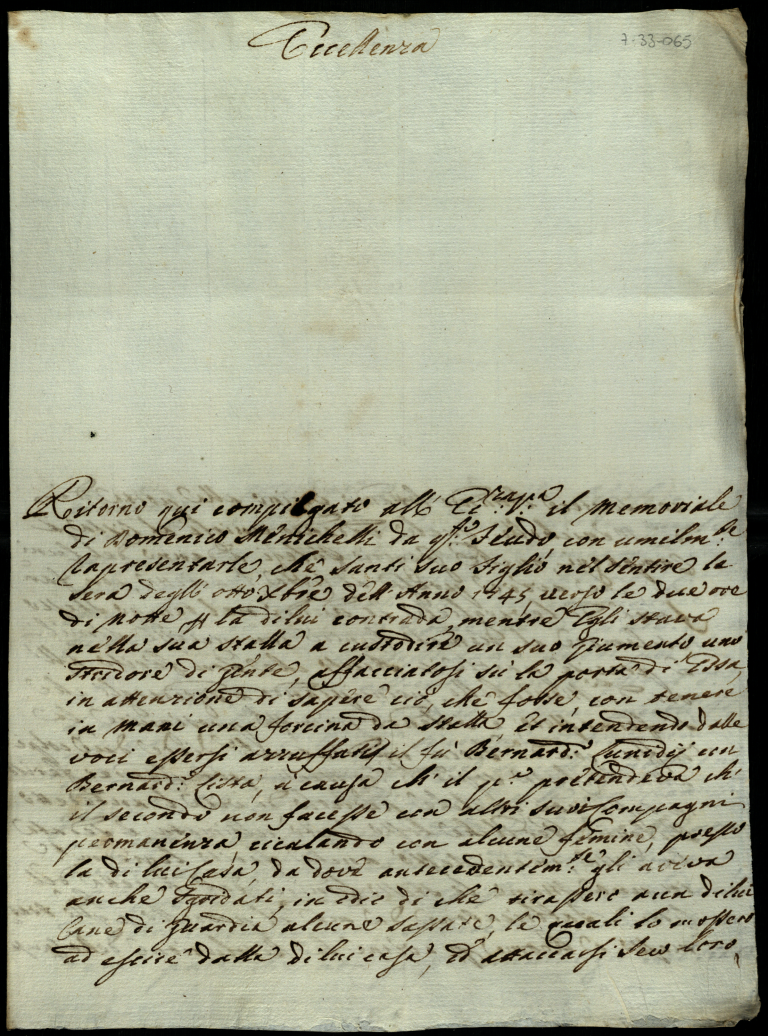 Eccellenza
7-33-065
Ritorno qui compiegato all' Ec:za V:ra il Memoriale
di Domenico Menichelli da q:sto Feudo, con umilm:te
rapresentarle, che Santi suo figlio nel sentire la
sera degli otto Xbre dell'Anno 1745 verso le due ore
di notte p la di lui contrada, mentre Egli stava
nella sua stalla a custodire un suo Giumento, uno
stridore di gente, affacciatosi sù la porta di Essa,
in attenzione di sapere ciò, che fosse, con tenere
in mani una forcina da stalla, et intendendo dalle
voci essersi azzuffati il fù Bernard:o con
Bernard:o Cista, a causa ch' il p:o pretendeva ch'
il secondo non facesse con altri suoi Compagni
permanenza, cicalando con alcune femine, presso
la di lui Casa, da dove antecedentem:te gli aveva
anche sgridati, in odio di che tirassero a un di lui
Cane di guardia alcune sassate, le quali lo mossero
ad escire dalla di lui casa, ed attaccarsi seco loro,